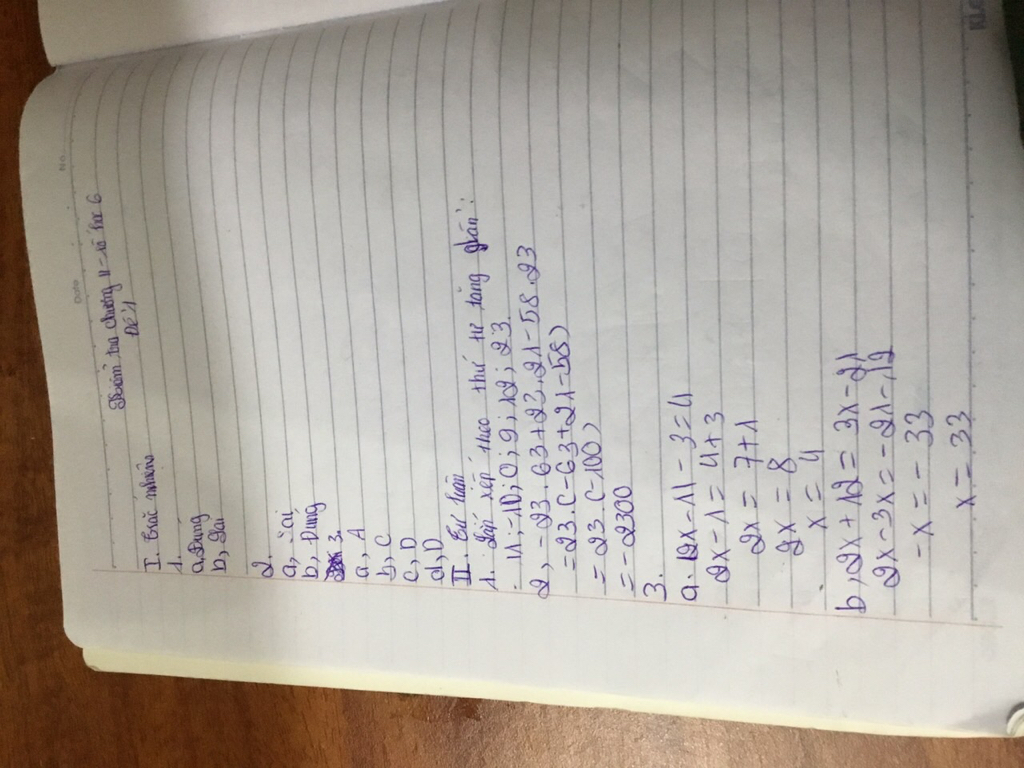 No.
Date
Kiểm tra chương II - số học 6
Đề 1
I. Trắc nhiệm
1.
a, Đúng
b, Sai
2.
a, Sai
b, Đúng
3.
a, A
b, C
c, D
d, D
II. Tự luận
1. Sắp xếp theo thứ tự tăng dần:
-11; -10; 0; 9; 12; 23
2, -23 . 63 + 23 . 21 - 58 . 23
= 23 . (-63 + 21 - 58)
= 23 . (-100)
= -2300
3.
a. |2x - 1| - 3 = 4
2x - 1 = 4 + 3
2x = 7 + 1
2x = 8
x = 4
b, 2x + 12 = 3x - 21
2x - 3x = -21 - 12
-x = -33
x = 33